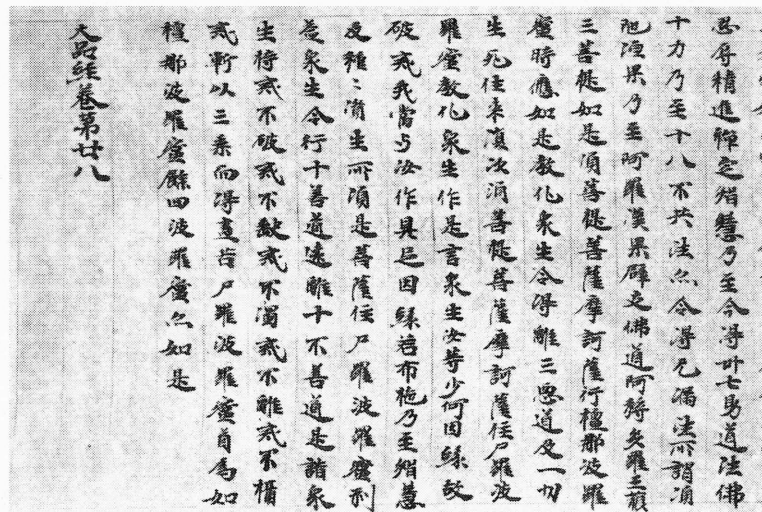 忍辱精進禪定智慧乃至令得卅七助道法佛
十力乃至十八不共法亦令得无漏法所謂須
陀洹果乃至阿羅漢果辟支佛道阿耨多羅三藐
三菩提如是須菩提菩薩摩訶薩行檀那波羅
蜜時應如是教化衆生令得離三惡道及一切
生死往來復次須菩提菩薩摩訶薩住尸羅波
羅蜜教化衆生作是言衆生汝等少何因緣故
破戒我當与汝作具足因緣若布施乃至智慧
及種〻資生所須是菩薩住尸羅波羅蜜利
益衆生令行十善道遠離十不善道是諸衆
生持戒不破戒不缺戒不濁戒不雜戒不
戒漸以三乘而得盡苦尸羅波羅蜜首爲如
檀那波羅蜜餘四波羅蜜亦如是
大品經卷第廿八